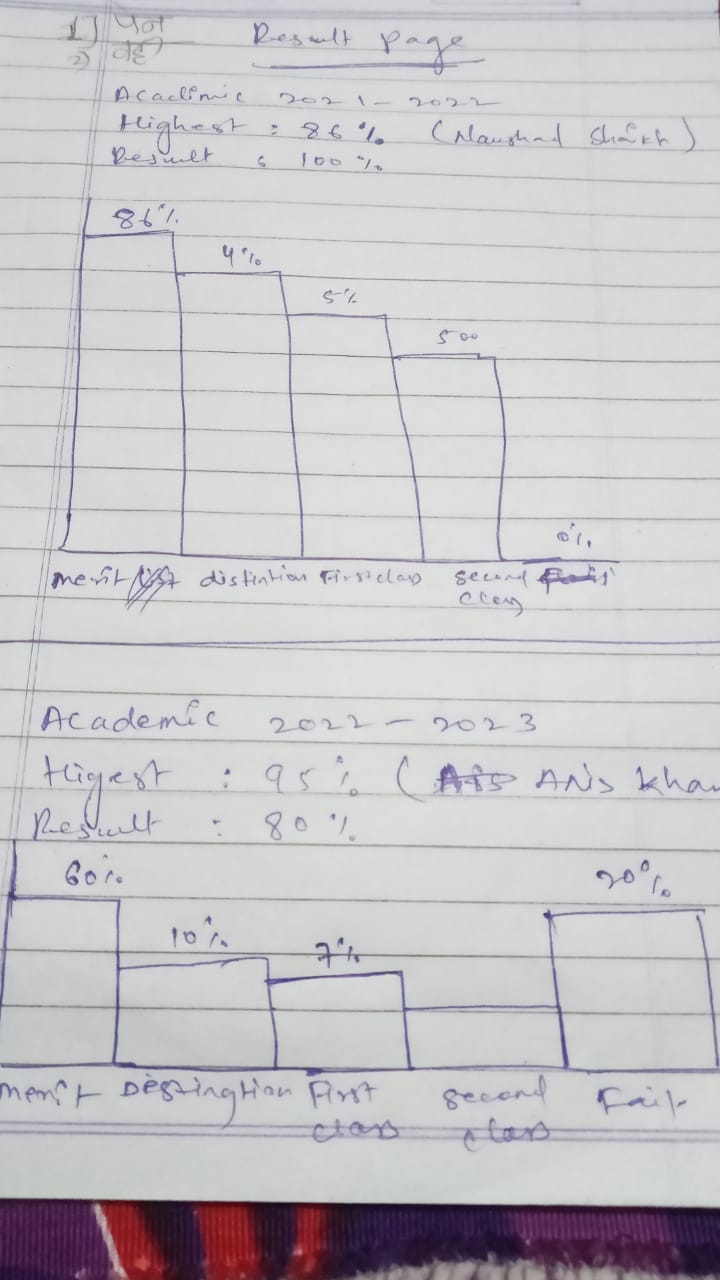 1) पेन
2) वही
Result page
Academic 2021 - 2022
Highest : 86% (Naushad Shaikh)
Result : 100%
86%
4%
5%
500
0%
merit distintion First class second Fail
class
Academic 2022 - 2023
Higest : 95% ( ANIS Khan
Result : 80%
60%
20%
10%
7%
merit Destingtion First second Fail
class class